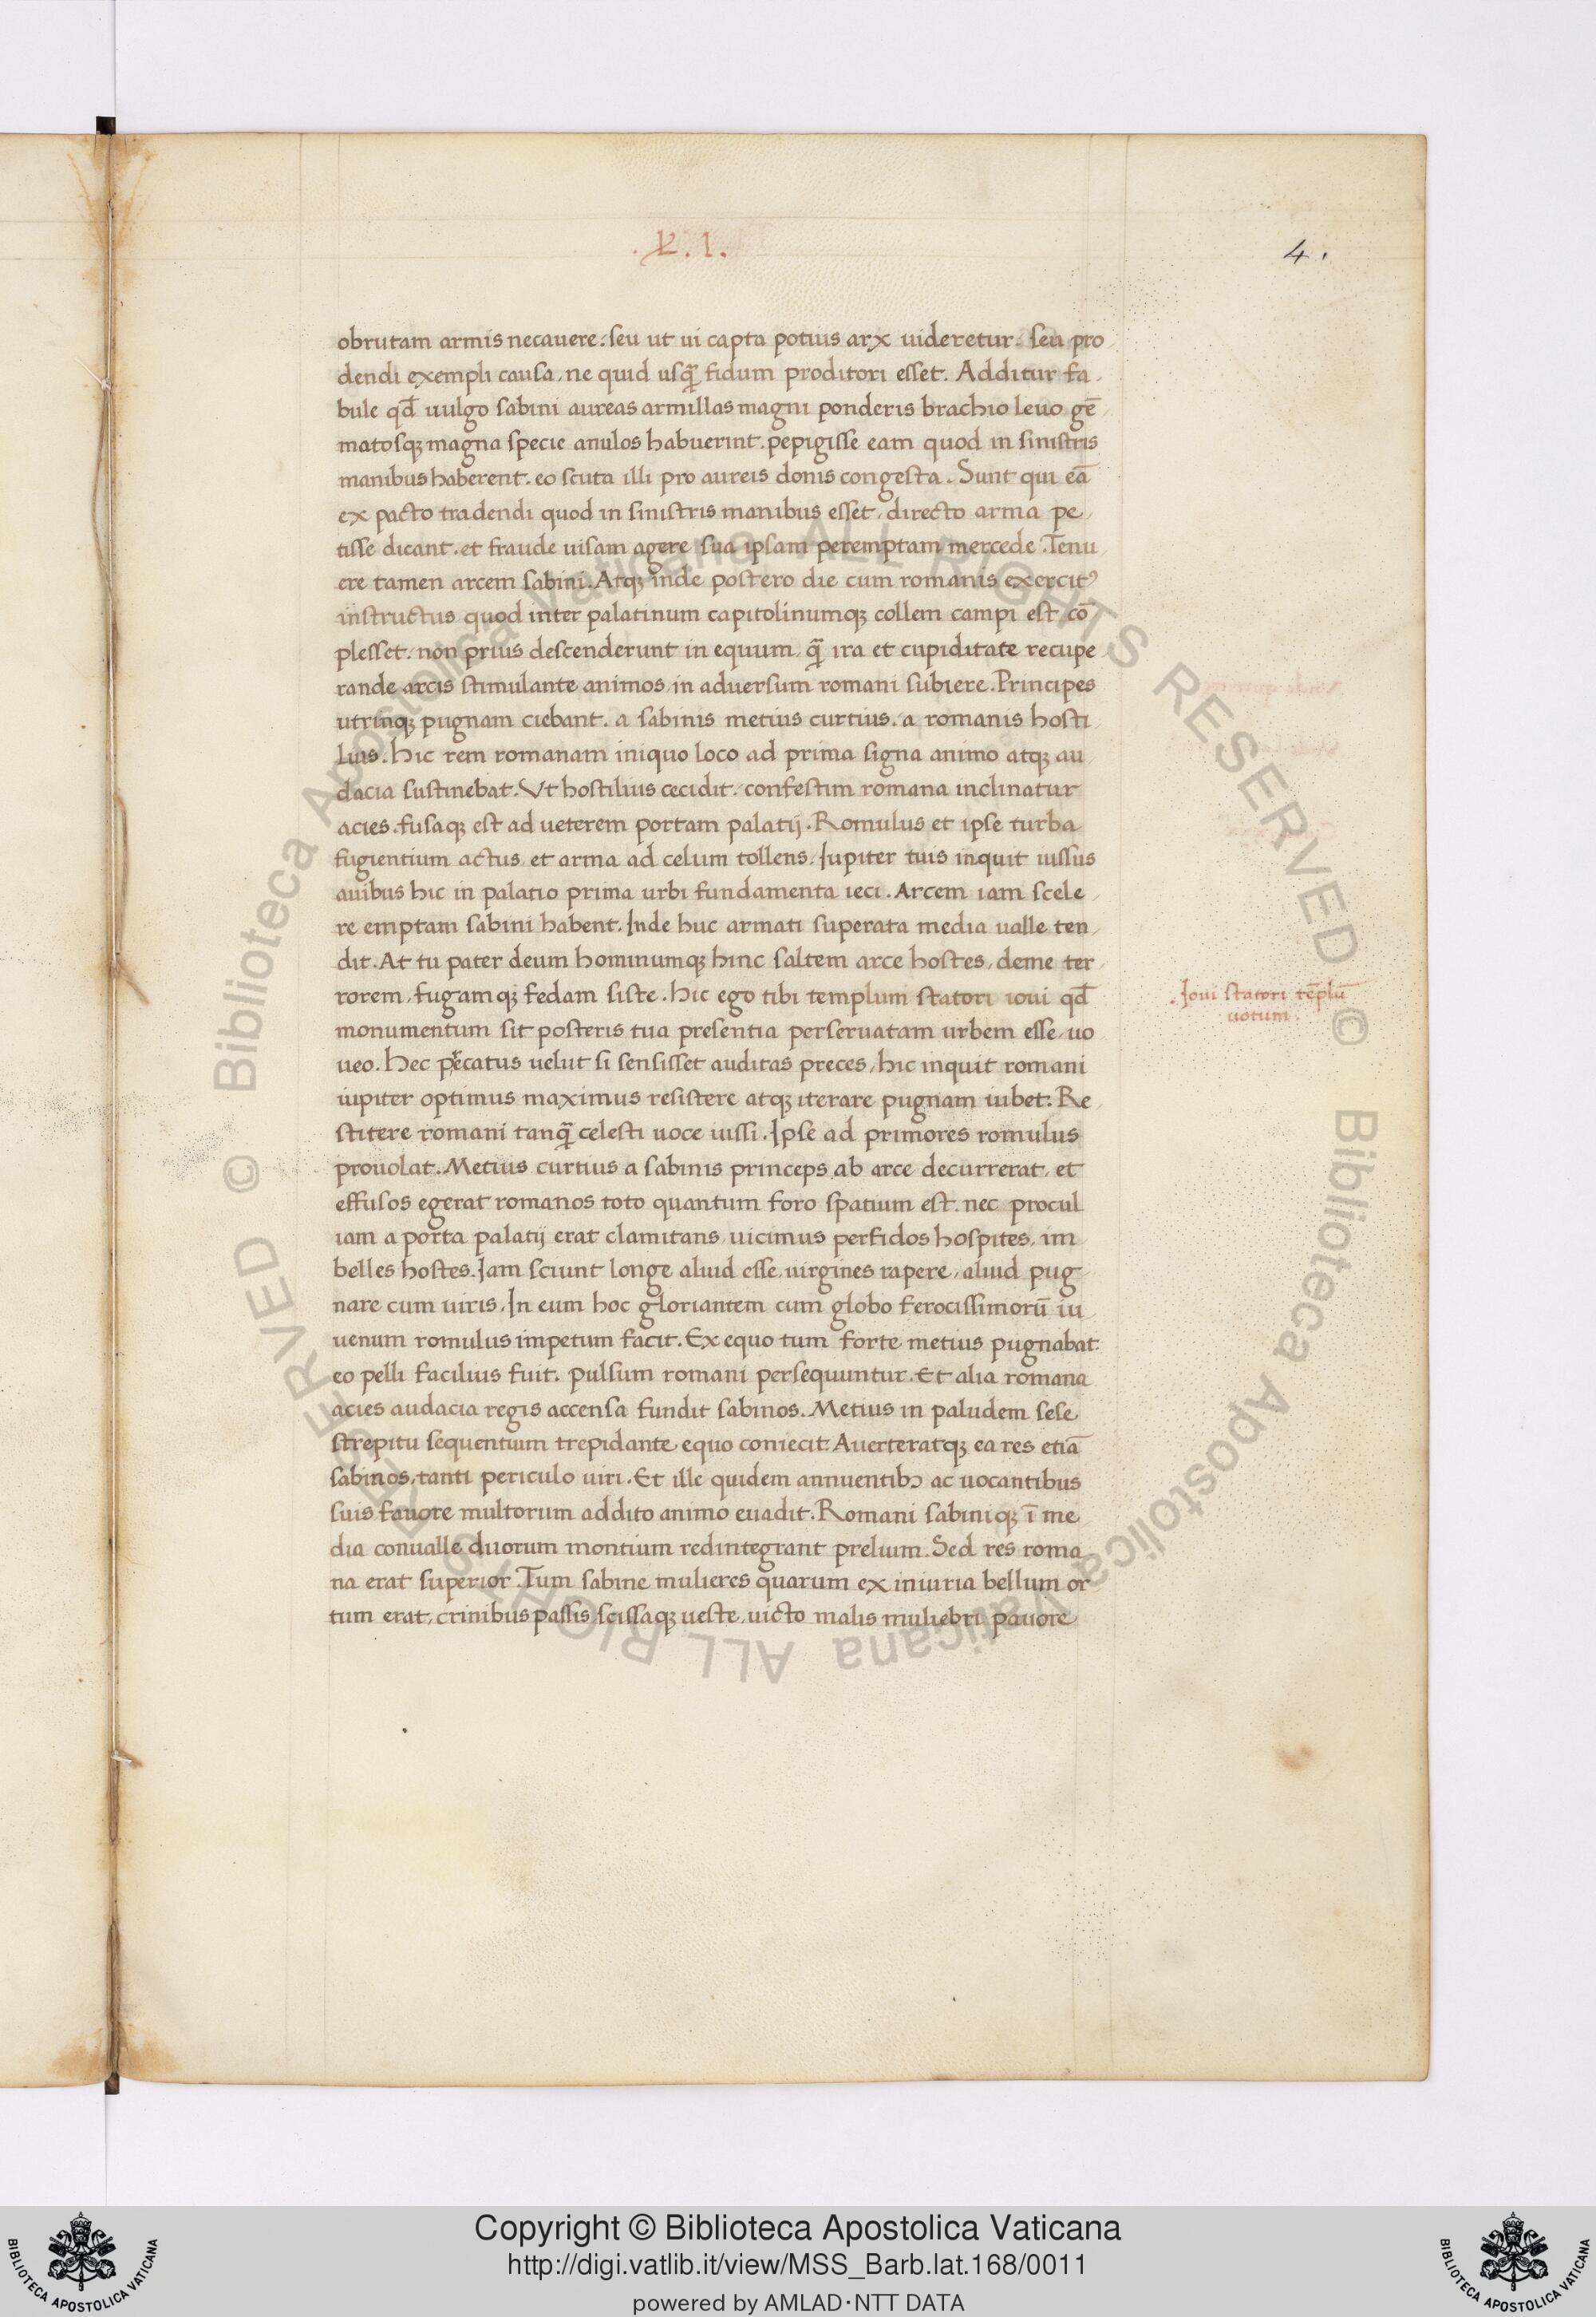 .L.I.
4.
obrutam armis necauere. seu ut ui capta potius arx uideretur. seu pro
dendi exempli causa, ne quid usq̃ fidum proditori esset. Additur fa
bule qđ uulgo sabini aureas armillas magni ponderis brachio leuo gē
matosqꝫ magna specie anulos habuerint. pepigisse eam quod in sinistris
manibus haberent. eo scuta illi pro aureis donis congesta. Sunt qui eā
ex pacto tradendi quod in sinistris manibus esset, directo arma pe
tisse dicant. et fraude uisam agere sua ipsam peremptam mercede. Tenu
ere tamen arcem sabini. Atqꝫ inde postero die cum romanis exercitꝰ
instructus quod inter palatinum capitolinumqꝫ collem campi est cō
plesset. non prius descenderunt in equum, q̃ ira et cupiditate recupe
rande arcis stimulante animos in aduersum romani subiere. Principes
utrinqꝫ pugnam ciebant. a sabinis metius curtius. a romanis hosti
lius. hic rem romanam iniquo loco ad prima signa animo atqꝫ au
dacia sustinebat. Vt hostilius cecidit. confestim romana inclinatur
acies. fusaqꝫ est ad ueterem portam palatij. Romulus et ipse turba
fugientium actus et arma ad celum tollens. Jupiter tuis inquit iussus
auibus hic in palatio prima urbi fundamenta ieci. Arcem iam scele
re emptam sabini habent. Inde huc armati superata media ualle ten
dit. At tu pater deum hominumqꝫ hinc saltem arce hostes, deme ter
rorem, fugamqꝫ fedam siste. hic ego tibi templum statori ioui qđ
monumentum sit posteris tua presentia perseruatam urbem esse, uo
ueo. Hec precatus uelut si sensisset auditas preces, hic inquit romani
iupiter optimus maximus resistere atqꝫ iterare pugnam iubet. Re
stitere romani tanq̃ celesti uoce iussi. Ipse ad primores romulus
prouolat. Metius curtius a sabinis princeps ab arce decurrerat, et
effusos egerat romanos toto quantum foro spatium est. nec procul
iam a porta palatij erat clamitans uicimus perfidos hospites, im
belles hostes. Jam sciunt longe aliud esse, uirgines rapere, aliud pug
nare cum uiris. In eum hoc gloriantem cum globo ferocissimorū iu
uenum romulus impetum facit. Ex equo tum forte metius pugnabat
eo pelli facilius fuit. pulsum romani persequuntur. Et alia romana
acies audacia regis accensa fundit sabinos. Metius in paludem sese
strepitu sequentium trepidante equo coniecit. Auerteratqꝫ ea res etiā
sabinos, tanti periculo uiri. Et ille quidem annuentibꝫ ac uocantibus
suis fauore multorum addito animo euadit. Romani sabiniqꝫ ī me
dia conualle duorum montium redintegrant prelium. Sed res roma
na erat superior. Tum sabine mulieres quarum ex iniuria bellum or
tum erat, crinibus passis scissaqꝫ ueste, uicto malis muliebri pauore
.Joui statori tēplū
uotum.
© Biblioteca Apostolica Vaticana ALL RIGHTS RESERVED
© Biblioteca Apostolica Vaticana ALL RIGHTS RESERVED
Copyright © Biblioteca Apostolica Vaticana
http://digi.vatlib.it/view/MSS_Barb.lat.168/0011
powered by AMLAD·NTT DATA
BIBLIOTECA APOSTOLICA VATICANA
BIBLIOTECA APOSTOLICA VATICANA